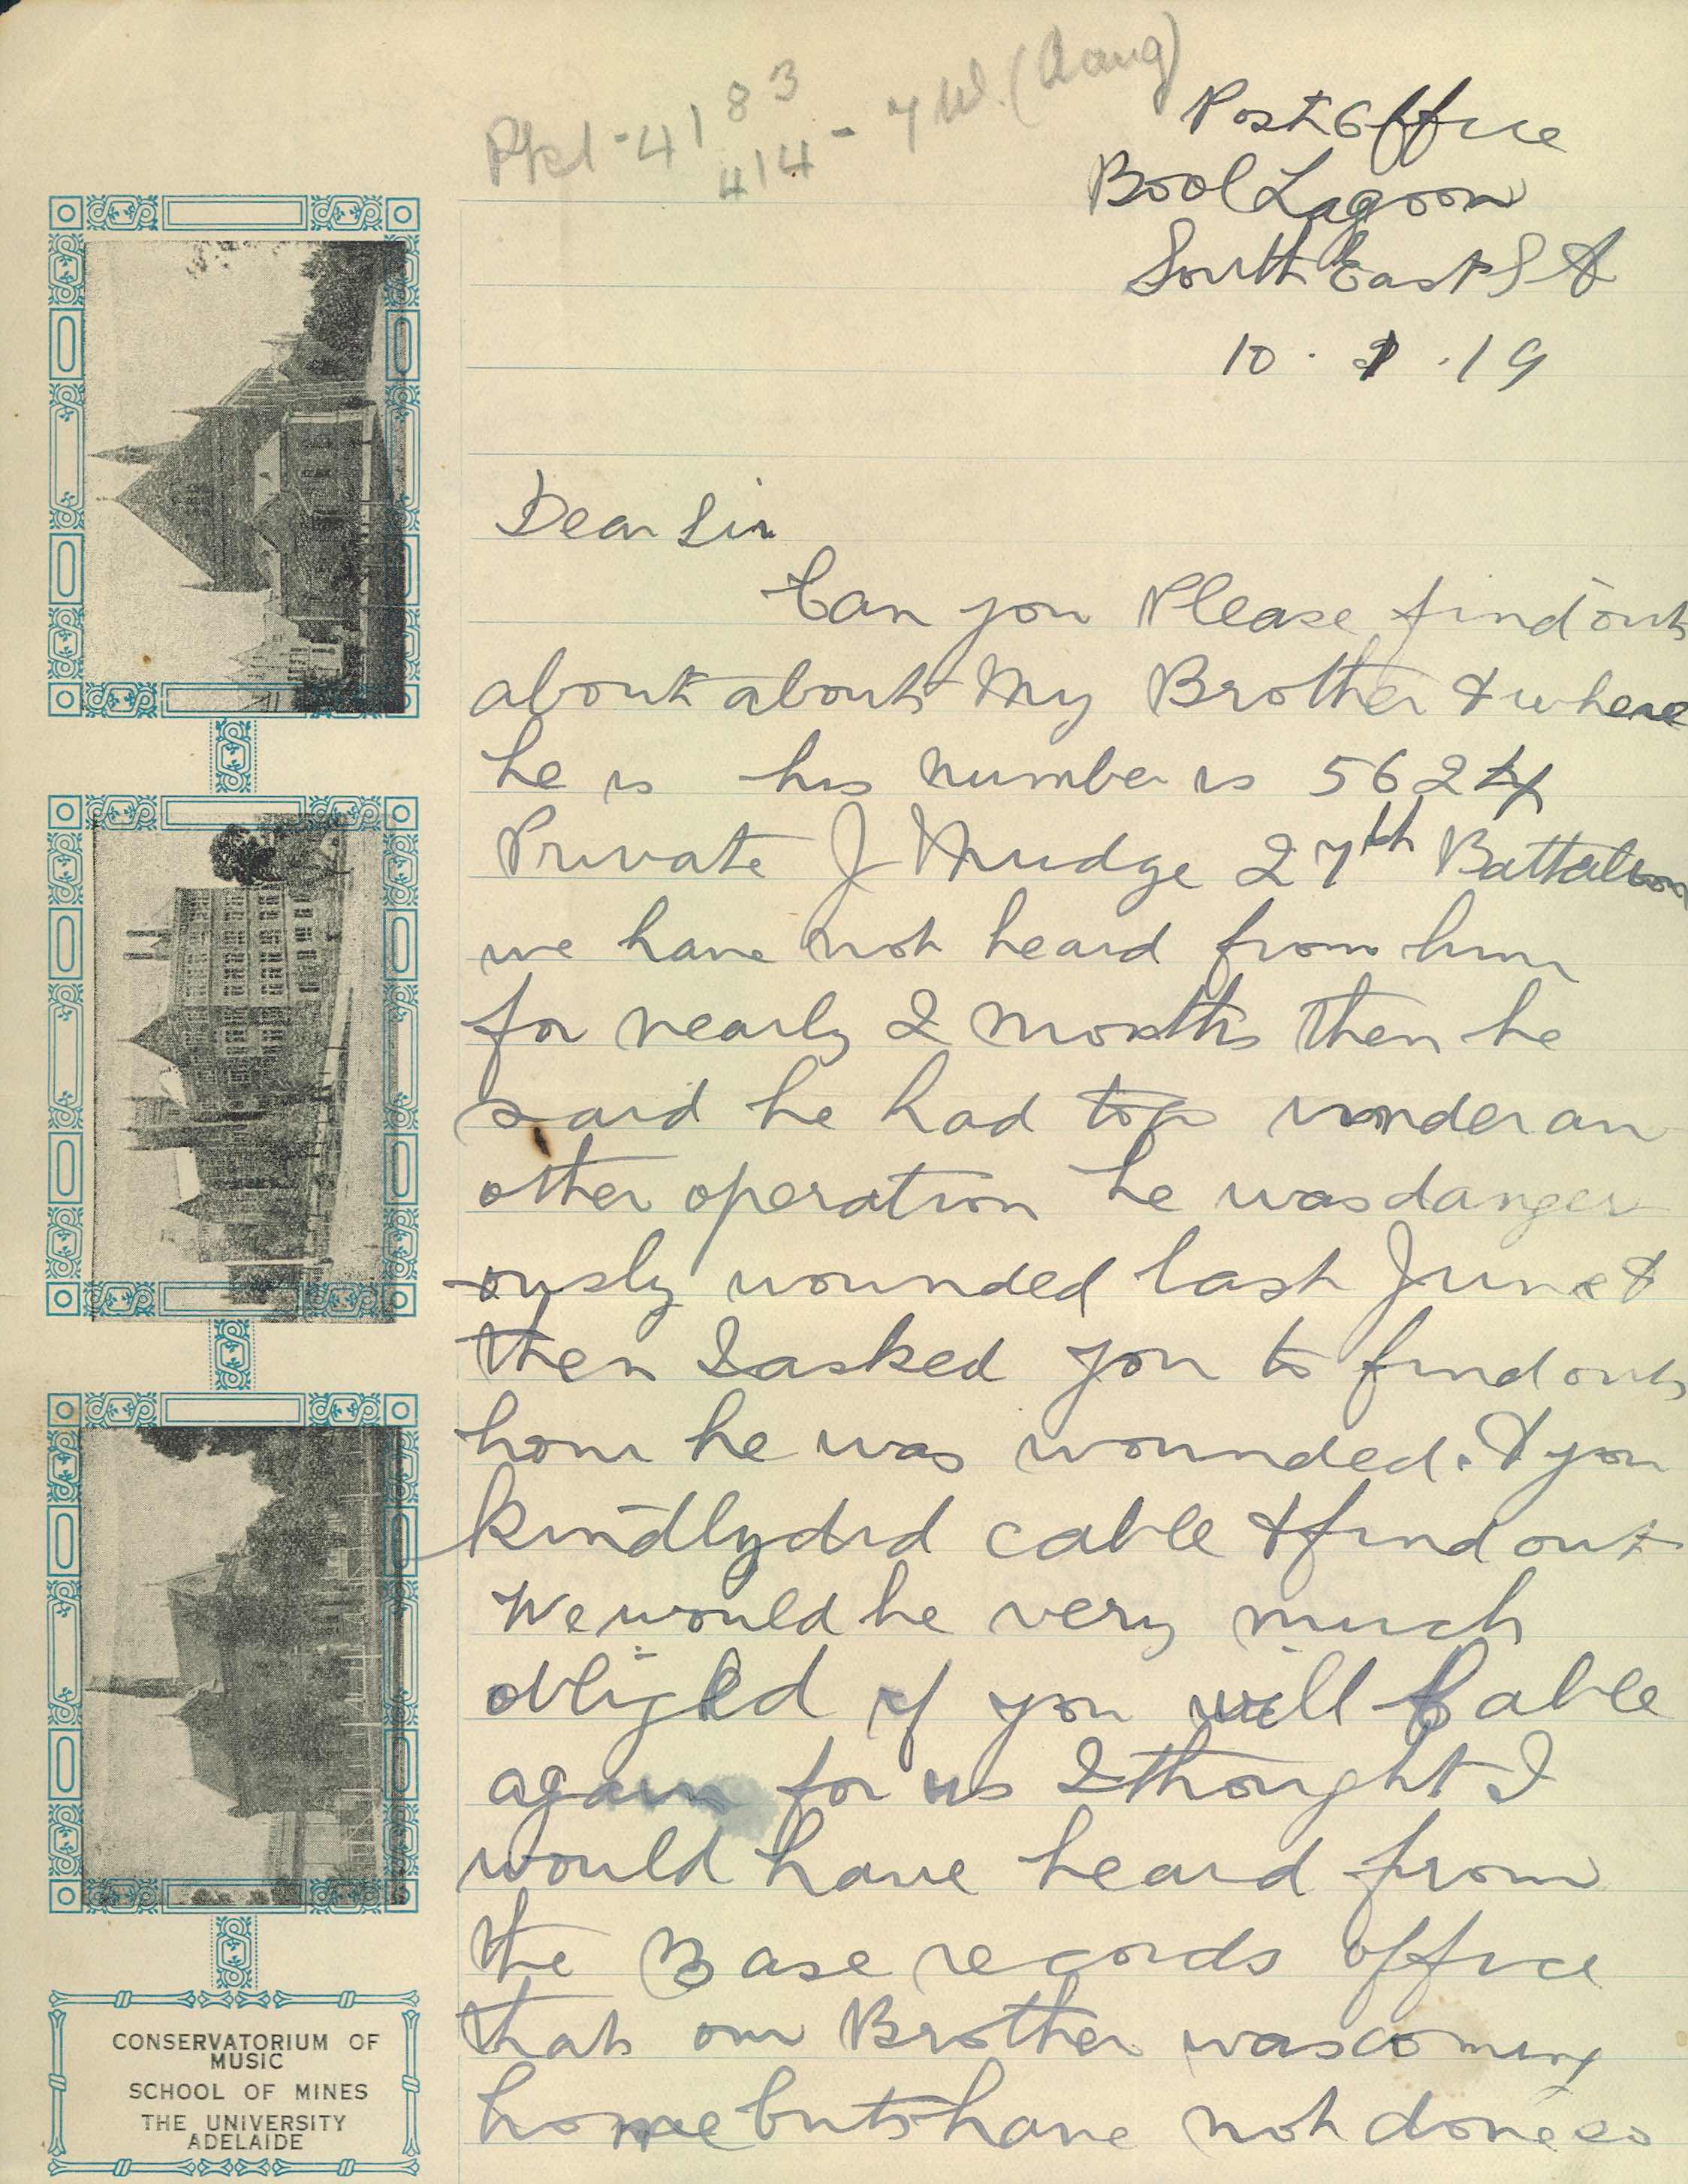 Pkt - 4183
414 - 7 W.
Post Office
Bool Lagoon
South East S A
10 . 1 . 19
Dear Sir
Can you Please find out
about about My Brother & where
he is his number is 5624
Private J Mudge 27th Battalion
we have not heard from him
for nearly 2 months then he
said he had to under an
other operation he was danger
-ously wounded last June &
then I asked you to find out
how he was wounded. & you
kindly did cable & find out
We would be very much
obliged if you will Cable
again for us I thought I
would have heard from
the Base records office
that our Brother was coming
home but have not done so
CONSERVATORIUM OF
MUSIC
SCHOOL OF MINES
THE UNIVERSITY
ADELAIDE